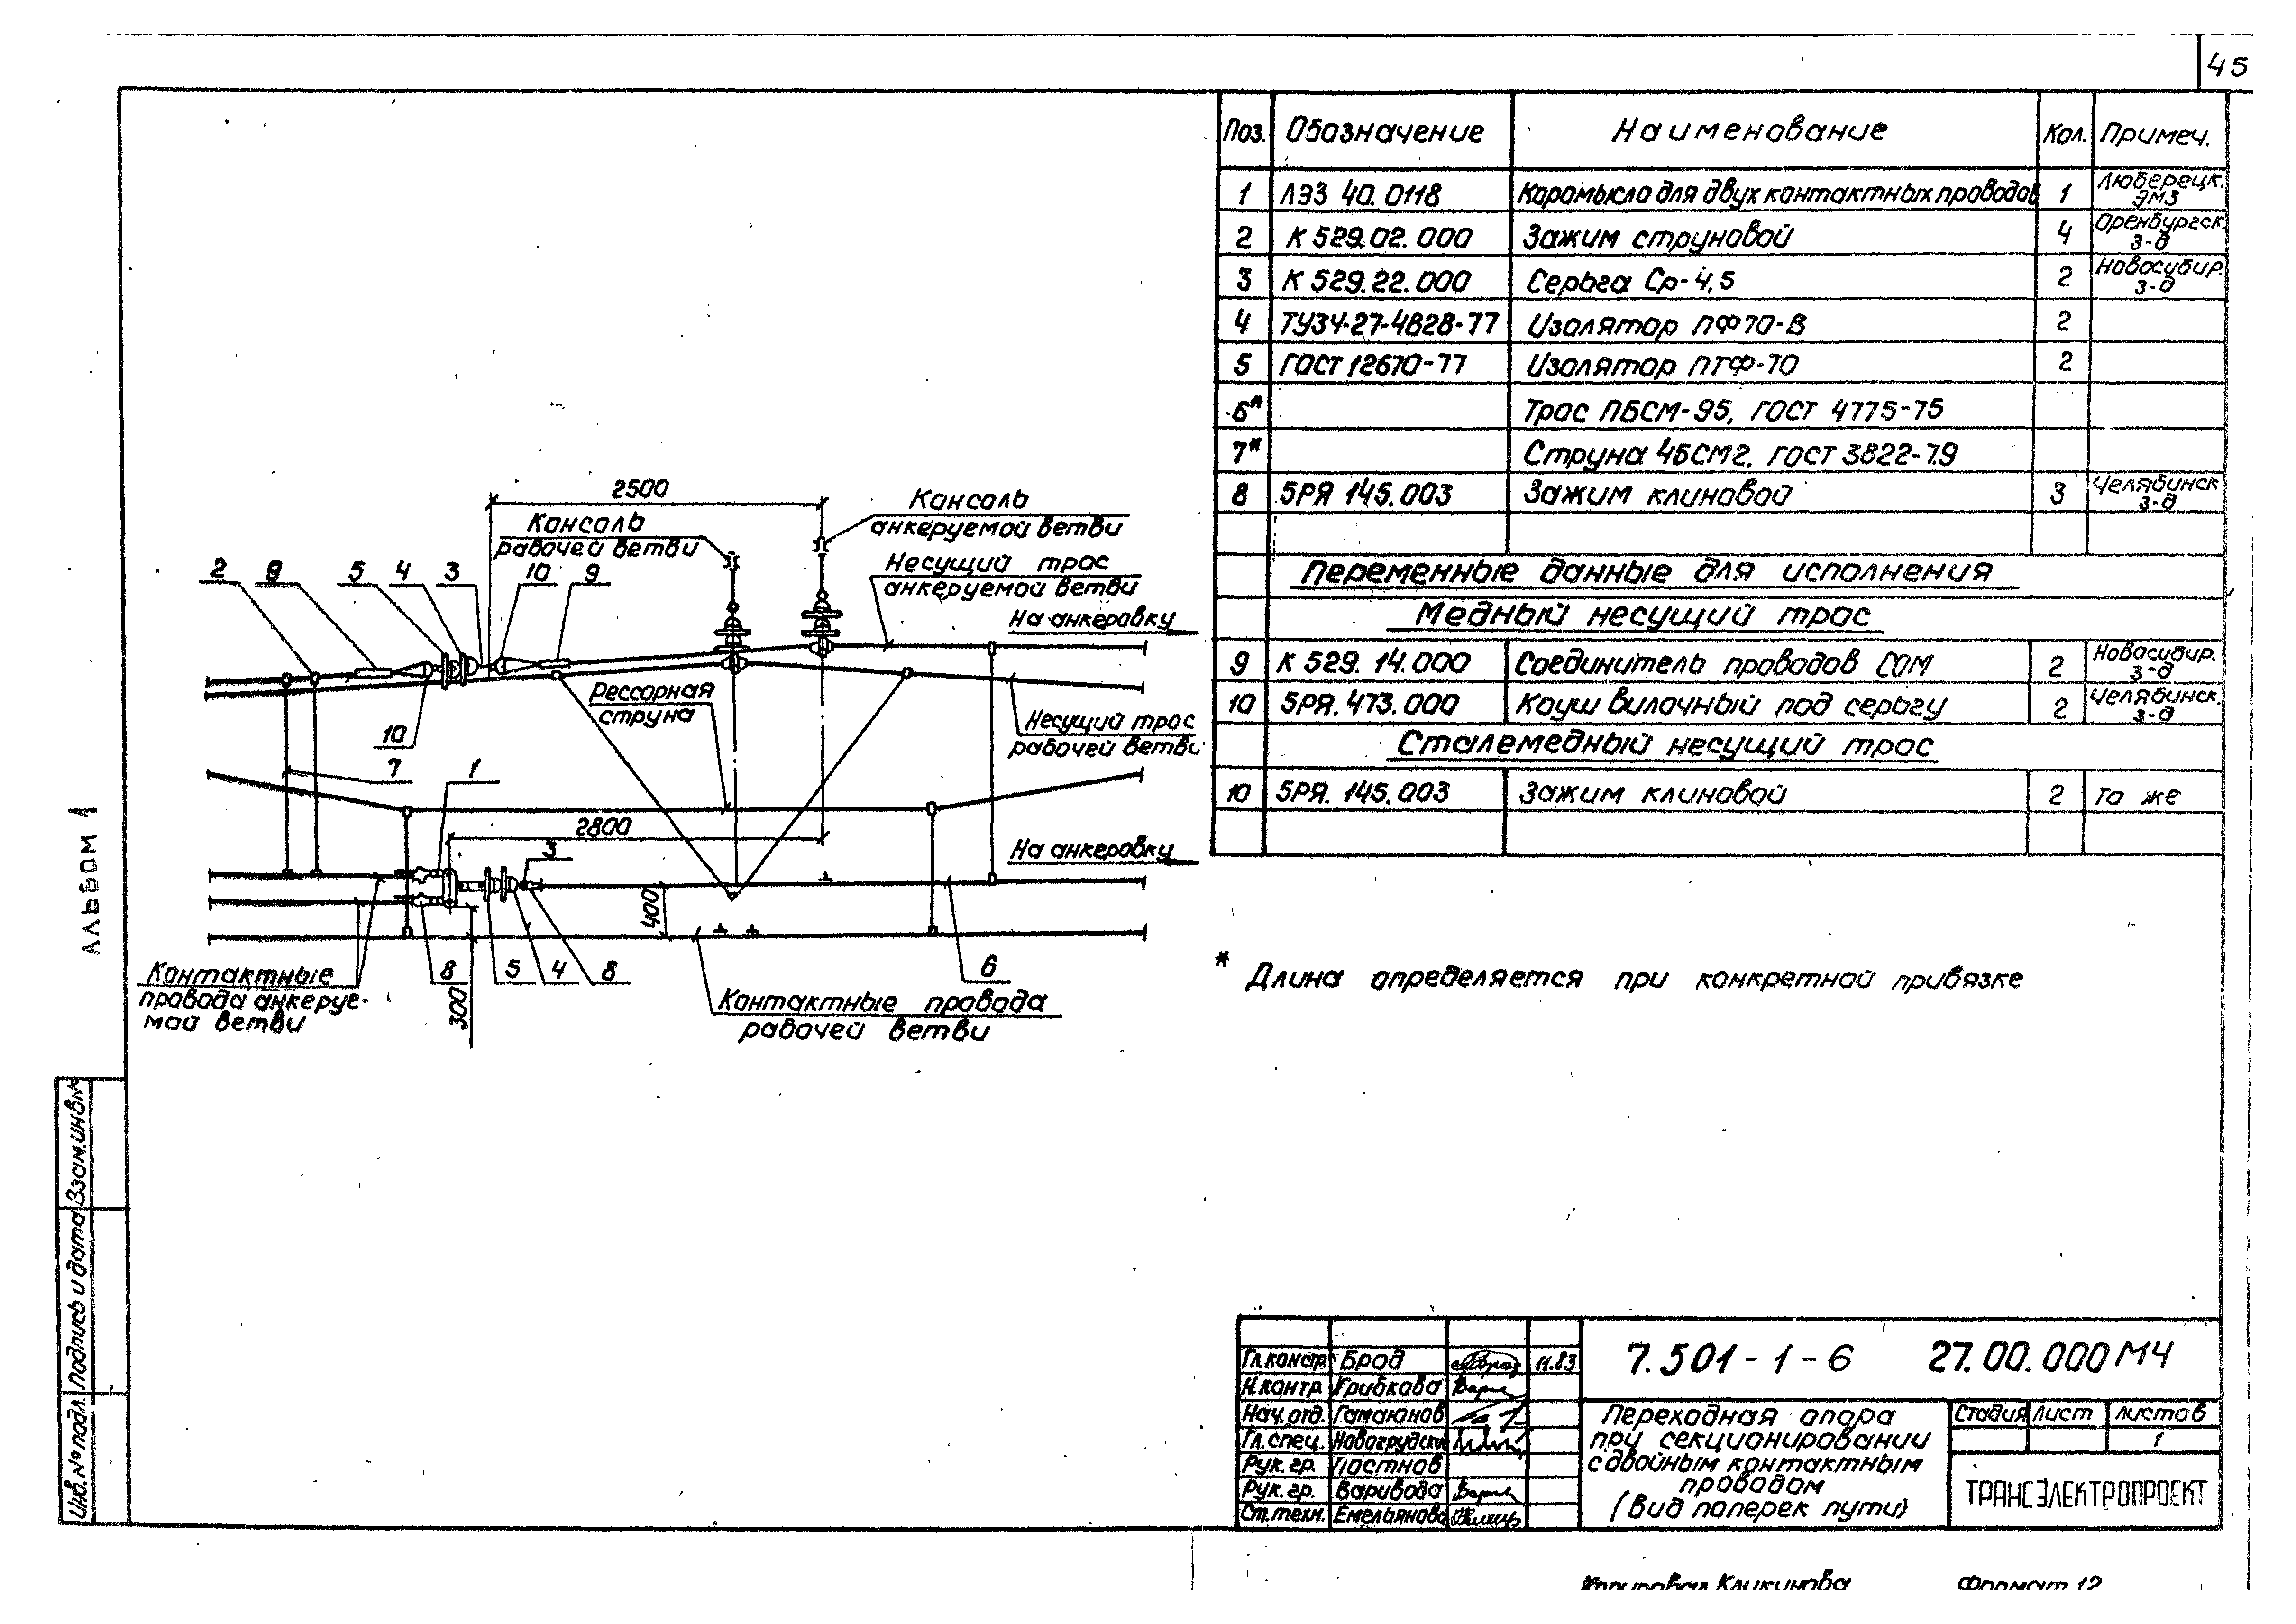 45
Поз. Обозначение Наименование Кол. Примеч.
1 ЛЭЗ 40.0118 Коромысло для двух контактных проводов 1 Люберецк. ЭМЗ
2 К 529.02.000 Зажим струновой 4 Оренбургск. з-д
3 К 529.22.000 Серьга Ср-4,5 2 Новосибир. з-д
4 ТУ34-27-4828-77 Изолятор ПФ70-В 2
5 ГОСТ 12670-77 Изолятор ПТФ-70 2
6* Трос ПБСМ-95, ГОСТ 4775-75
7* Струна 4БСМ2, ГОСТ 3822-79
8 5РЯ 145.003 Зажим клиновой 3 Челябинск з-д
Переменные данные для исполнения
Медный несущий трос
9 К 529.14.000 Соединитель проводов СОМ 2 Новосибир. з-д
10 5РЯ.473.000 Коуш вилочный под серьгу 2 Челябинск. з-д
Сталемедный несущий трос
10 5РЯ.145.003 Зажим клиновой 2 То же
* Длина определяется при конкретной привязке
2500
Консоль
анкеруемой ветви
Консоль
рабочей ветви
Несущий трос
анкеруемой ветви
2 9 5 4 3 10 9
На анкеровку
Рессорная
струна
Несущий трос
рабочей ветви
10
7 1
2800
3
На анкеровку
400
8 5 4 8 6
300
Контактные
провода анкеруе-
мой ветви
Контактные провода
рабочей ветви
Альбом 1
Инв.№ подл. Подпись и дата Взам.инв.№
Гл.констр. Брод 11.83
Н.контр. Грибкова
Нач.отд. Гамаюнов
Гл.спец. Новогрудский
Рук.гр. Постнов
Рук.гр. Варивода
Ст.техн. Емельянова
7.501-1-6 27.00.000МЧ
Переходная опора
при секционировании
с двойным контактным
проводом
(Вид поперек пути)
Стадия Лист Листов
1
ТРАНСЭЛЕКТРОПРОЕКТ
Копировал Кликунова Формат 12